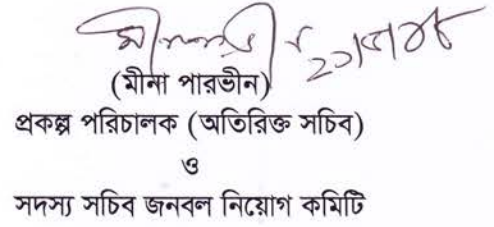 (মীনা পারভীন)
প্রকল্প পরিচালক (অতিরিক্ত সচিব)
ও
সদস্য সচিব জনবল নিয়োগ কমিটি